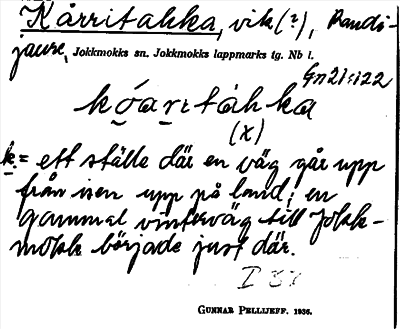 Kårritakka, vik(?), Randi-
jaure, Jokkmokks sn. Jokkmokks lappmarks tg. Nb l.
Gn21:122
kǫ́aṛıtáhka
(x)
k. = ett ställe där en väg går upp
från isen upp på land; en
gammal vinterväg till Jokk-
mokk började just där.
I 37
GUNNAR PELLIJEFF. 1936.